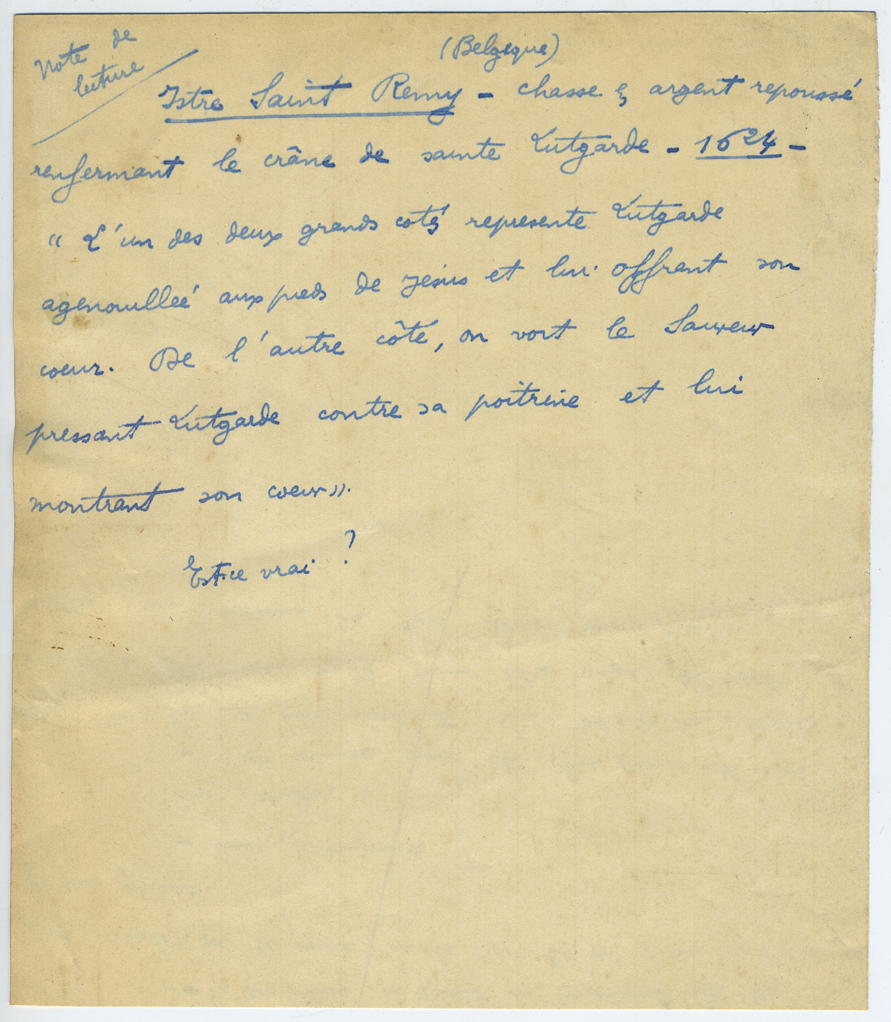 Note de
lecture
(Belgique)
Istre Saint Remy - chasse en argent repoussé
renfermant le crâne de sainte Lutgarde - 1624 -
"L'un des deux grands coté represente Lutgarde
agenouilleé aux pieds de Jesus et lui offrant son
coeur. De l'autre côté, on voit le Sauveur
pressant Lutgarde contre sa poitrine et lui
montrant son coeur".
Est-ce vrai ?